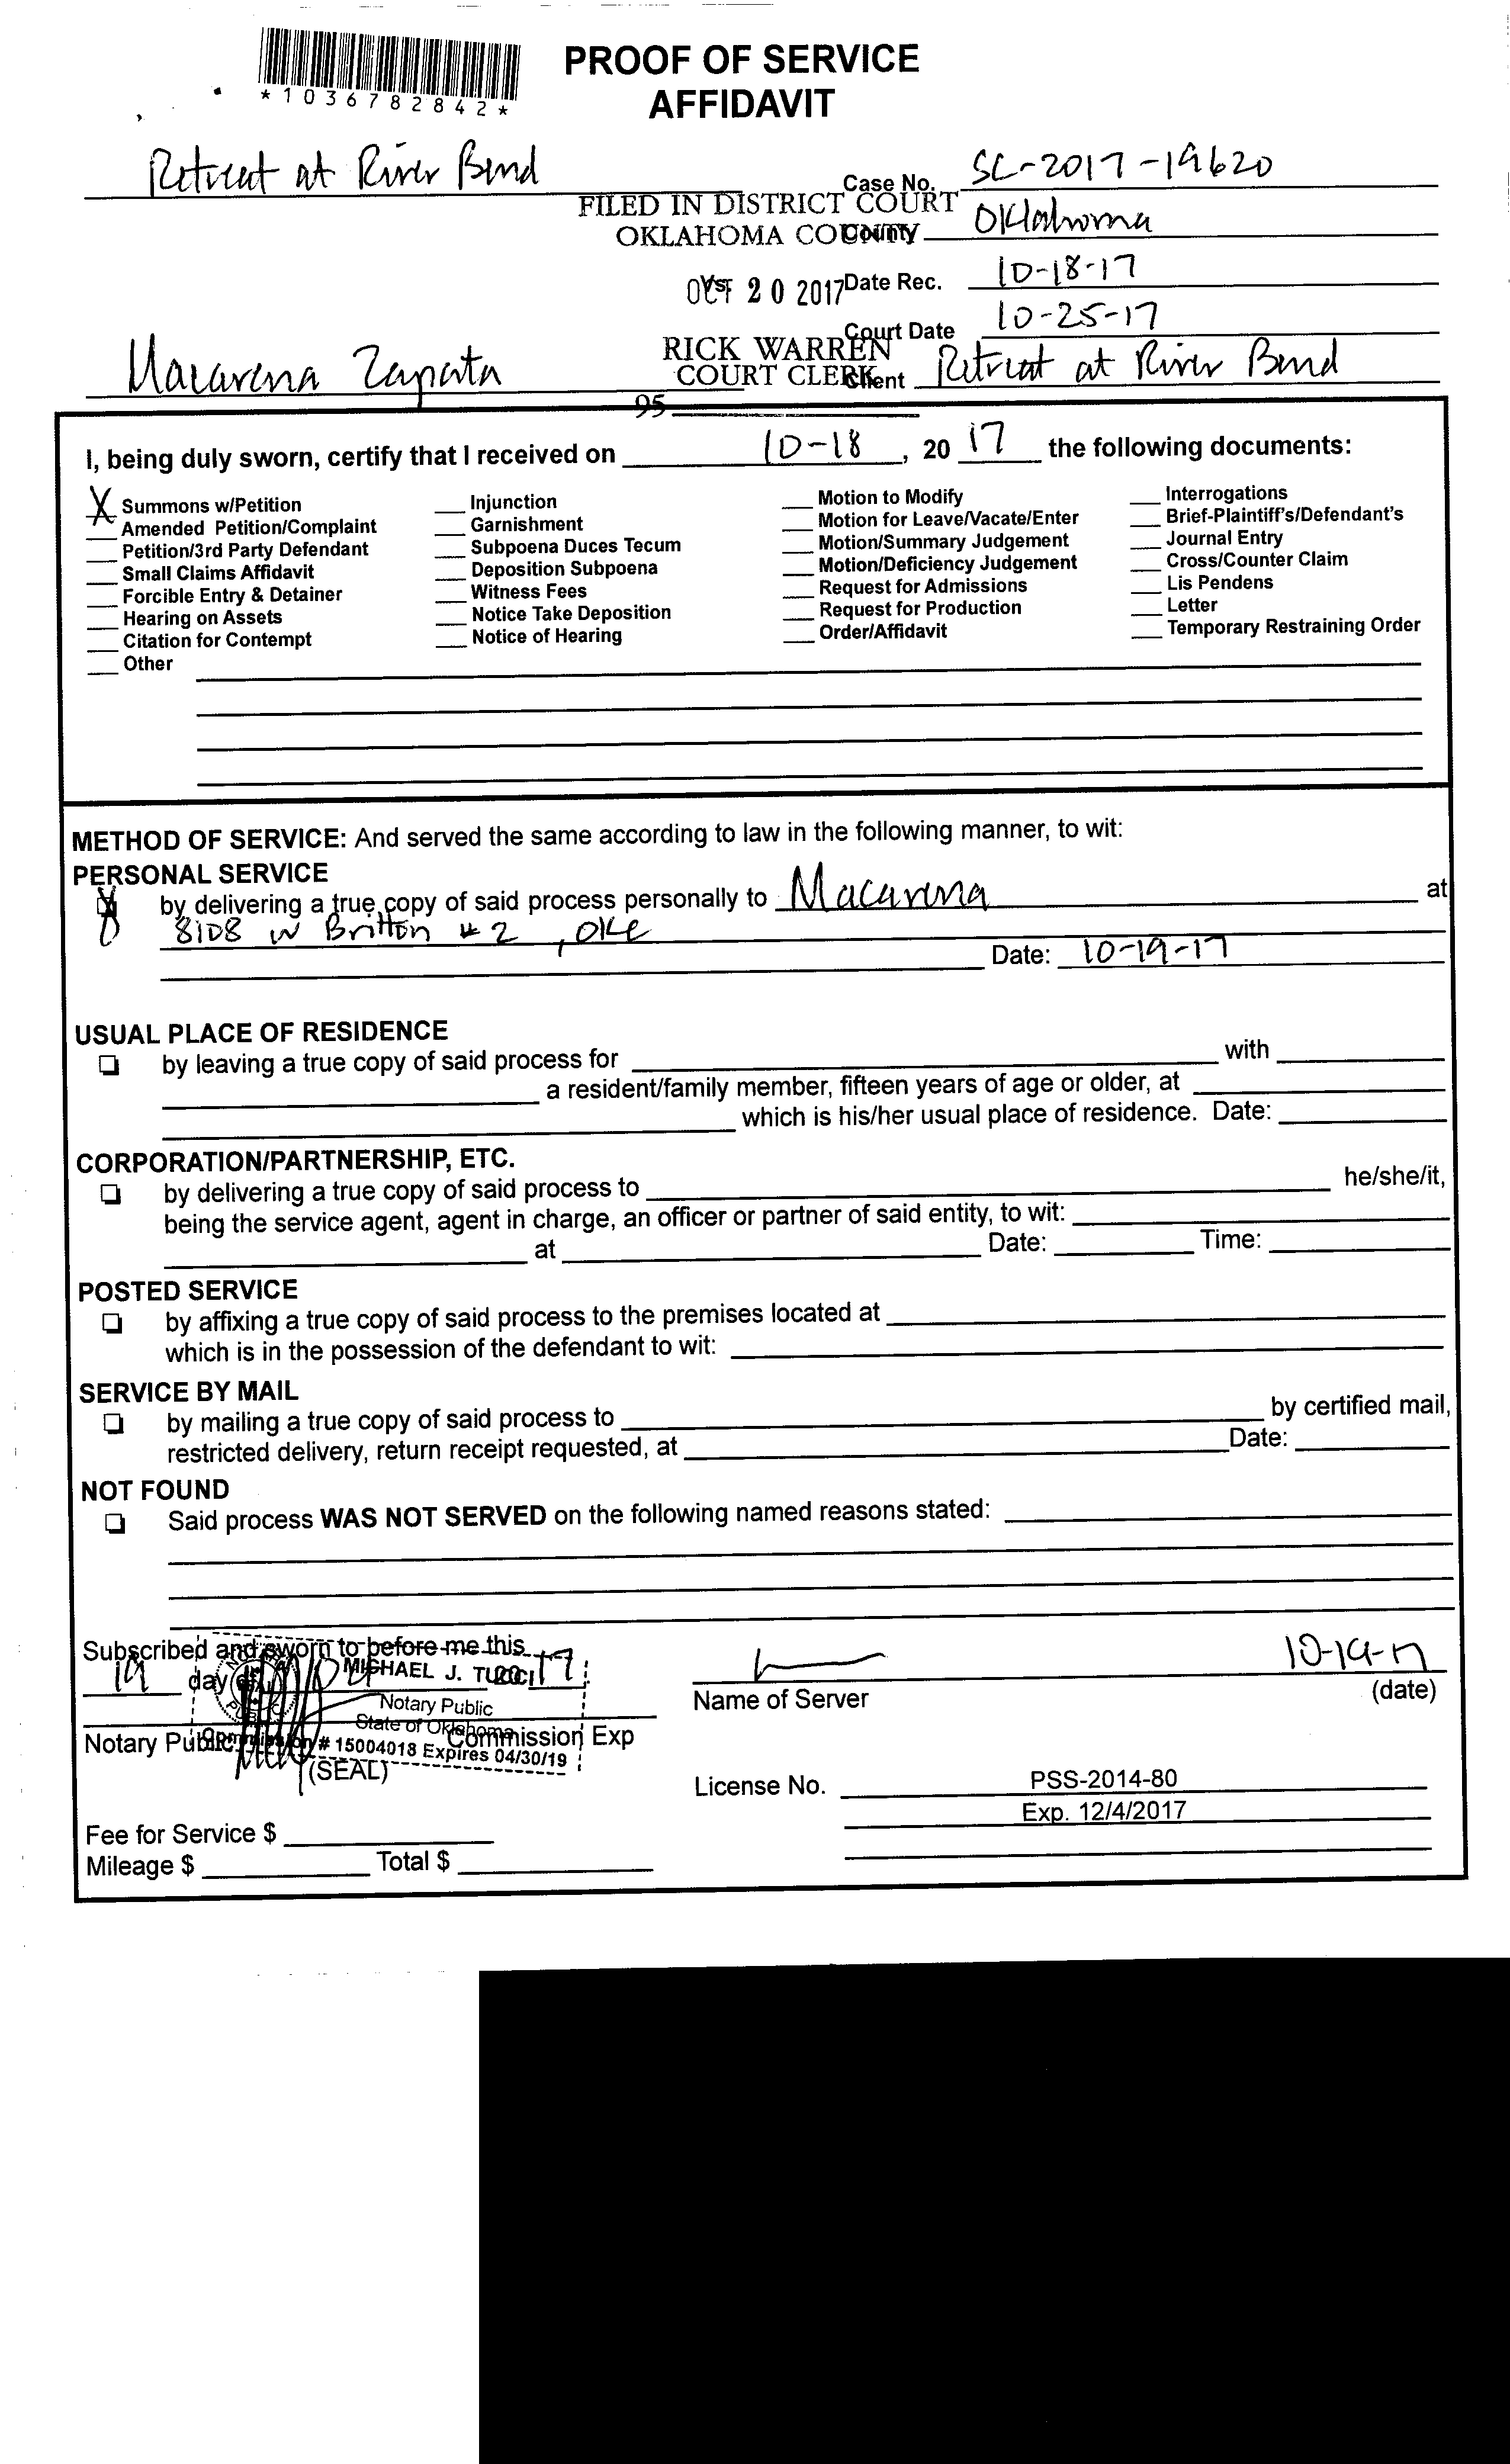 *1036782842*
PROOF OF SERVICE
AFFIDAVIT
Retreat at River Bend
Case No. SC-2017-19620
FILED IN DISTRICT COURT
OKLAHOMA COUNTY
County Oklahoma
vs.
OCT 20 2017
Date Rec. 10-18-17
Court Date 10-25-17
RICK WARREN
COURT CLERK
Macarena Zapata
Client Retreat at River Bend
95
I, being duly sworn, certify that I received on 10-18, 20 17 the following documents:
X Summons w/Petition
Amended Petition/Complaint
Petition/3rd Party Defendant
Small Claims Affidavit
Forcible Entry & Detainer
Hearing on Assets
Citation for Contempt
Other
Injunction
Garnishment
Subpoena Duces Tecum
Deposition Subpoena
Witness Fees
Notice Take Deposition
Notice of Hearing
Motion to Modify
Motion for Leave/Vacate/Enter
Motion/Summary Judgement
Motion/Deficiency Judgement
Request for Admissions
Request for Production
Order/Affidavit
Interrogations
Brief-Plaintiff's/Defendant's
Journal Entry
Cross/Counter Claim
Lis Pendens
Letter
Temporary Restraining Order
METHOD OF SERVICE: And served the same according to law in the following manner, to wit:
PERSONAL SERVICE
by delivering a true copy of said process personally to Macarena at
8108 W Britton #2, OKC
Date: 10-19-17
USUAL PLACE OF RESIDENCE
by leaving a true copy of said process for with
a resident/family member, fifteen years of age or older, at
which is his/her usual place of residence. Date:
CORPORATION/PARTNERSHIP, ETC.
by delivering a true copy of said process to he/she/it,
being the service agent, agent in charge, an officer or partner of said entity, to wit:
at Date: Time:
POSTED SERVICE
by affixing a true copy of said process to the premises located at
which is in the possession of the defendant to wit:
SERVICE BY MAIL
by mailing a true copy of said process to by certified mail,
restricted delivery, return receipt requested, at Date:
NOT FOUND
Said process WAS NOT SERVED on the following named reasons stated:
Subscribed and sworn to before me this
19 day of 20 17
MICHAEL J. TUCCI
Notary Public
State of Oklahoma
Commission # 15004018 Expires 04/30/19
Notary Public Commission Exp
(SEAL)
10-19-17
Name of Server (date)
License No. PSS-2014-80
Exp. 12/4/2017
Fee for Service $
Mileage $ Total $